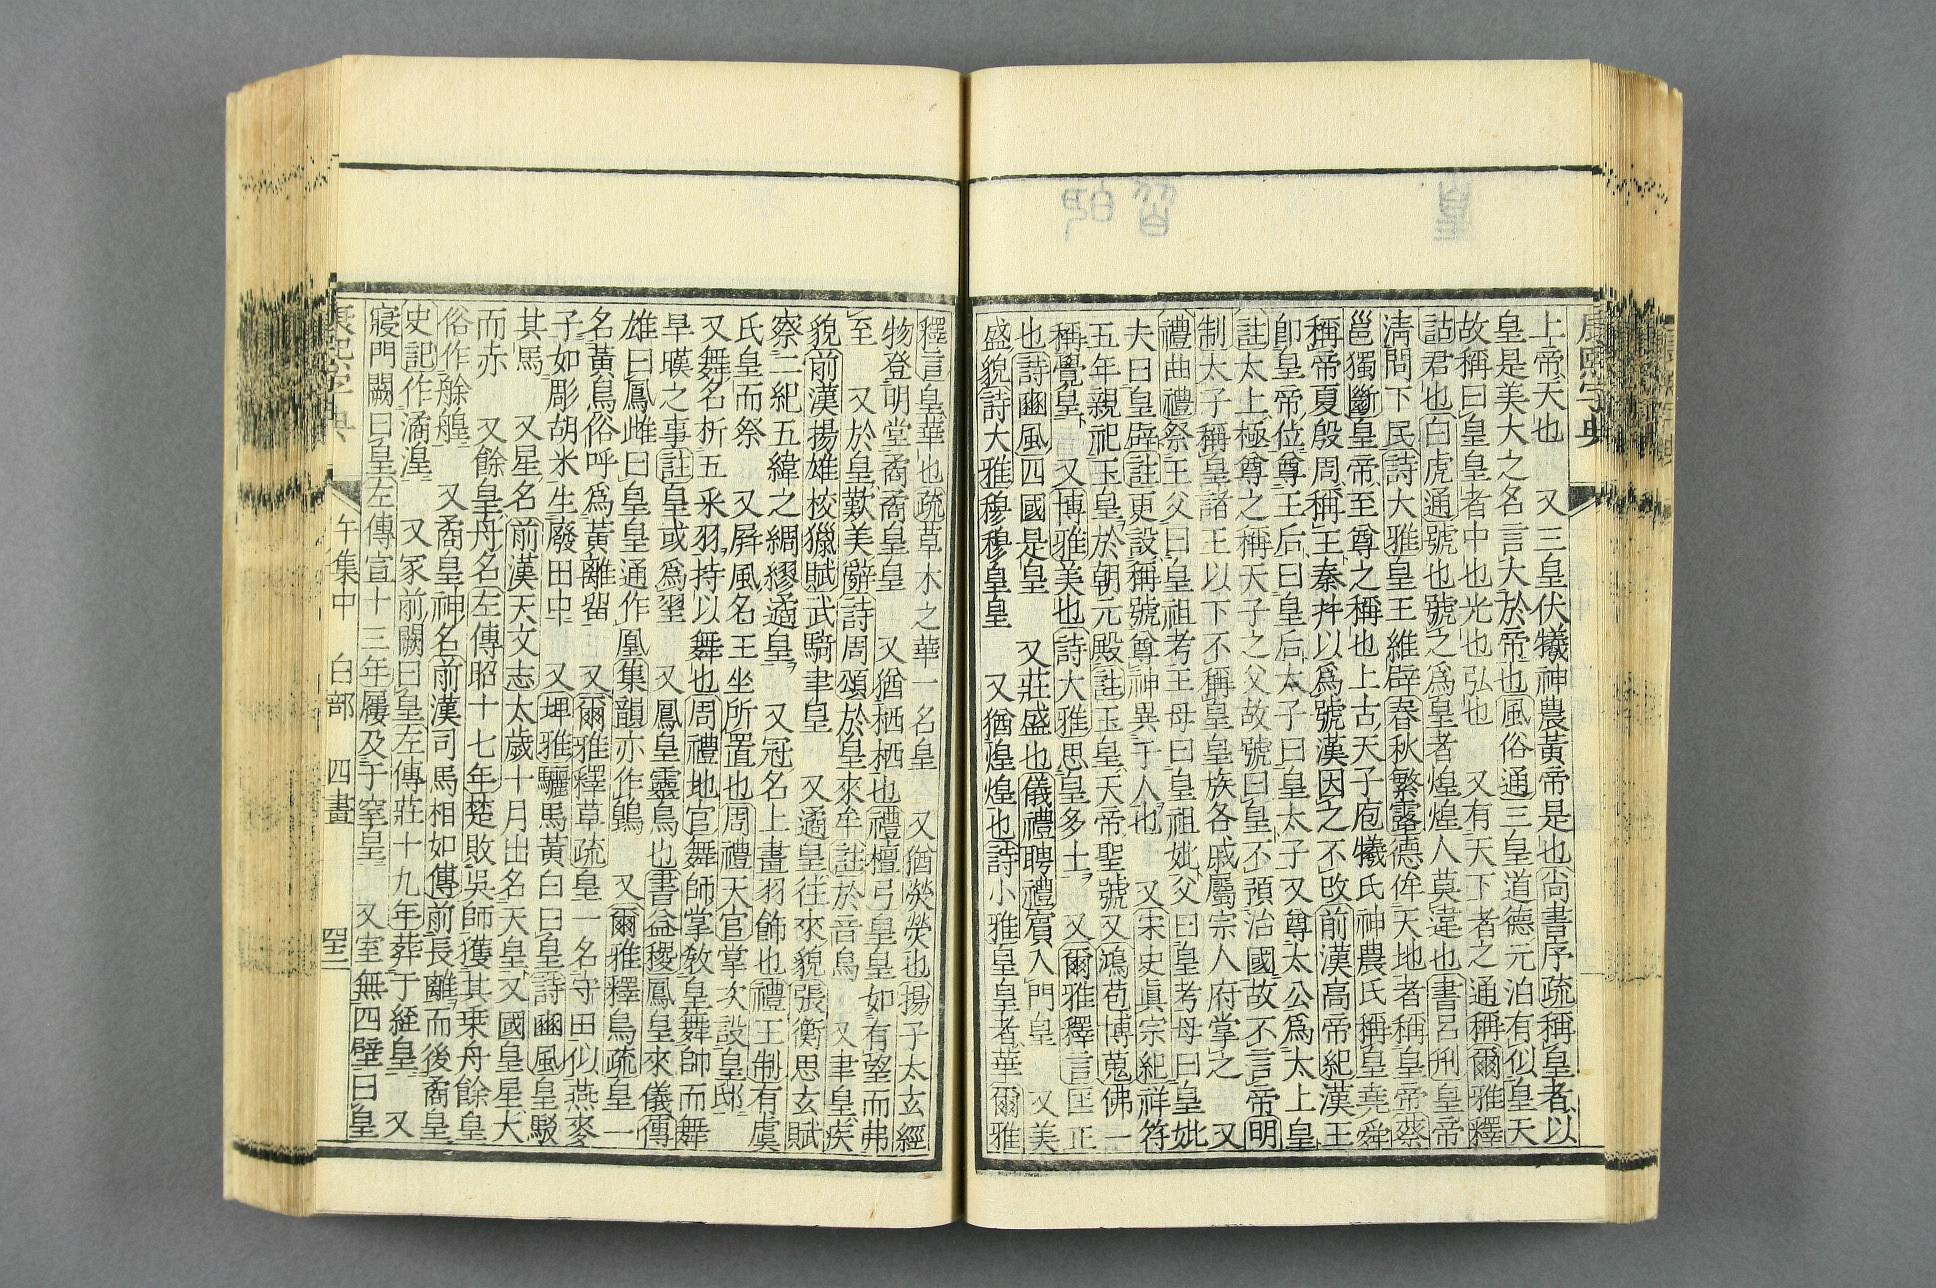 康熙字典
上帝天也　又三皇伏犧神農黃帝是也尙書序疏稱皇者以
皇是美大之名言大於帝也風俗通三皇道德元泊有似皇天
故稱曰皇皇者中也光也弘也　又有天下者之通稱爾雅釋
詁君也白虎通號也號之爲皇者煌煌人莫違也書呂𠛬皇帝
淸問下民詩大雅皇王維辟春秋繁露德侔天地者稱皇帝蔡
邕獨斷皇帝至尊之稱也上古天子庖犧氏神農氏稱皇堯舜
稱帝夏殷周稱王秦幷以爲號漢因之不改前漢高帝紀漢王
卽皇帝位尊王后曰皇后太子曰皇太子又尊太公爲太上皇
註太上極尊之稱天子之父故號曰皇不預治國故不言帝明
制太子稱皇諸王以下不稱皇皇族各戚屬宗人府掌之　又
禮曲禮祭王父曰皇祖考王母曰皇祖妣父曰皇考母曰皇妣
夫曰皇辟註更設稱號尊神異于人也　又宋史眞宗紀祥符
五年親祀玉皇於朝元殿註玉皇天帝聖號又鴻苞博蒐佛一
稱覺皇　又博雅美也詩大雅思皇多士　又爾雅釋言匡正
也詩豳風四國是皇　又莊盛也儀禮聘禮賔入門皇　又美
盛貌詩大雅穆穆皇皇　又猶煌煌也詩小雅皇皇者華爾雅
釋言皇華也疏草木之華一名皇　又猶熒熒也揚子太玄經
物登明堂矞矞皇皇　又猶栖栖也禮檀弓皇皇如有望而弗
至　又於皇歎美辭詩周頌於皇來牟註於音烏　又聿皇疾
貌前漢揚雄校獵賦武騎聿皇　又遹皇往來貌張衡思玄賦
察二紀五緯之綢繆遹皇　又冠名上畫羽飾也禮王制有虞
氏皇而祭　又屛風名王坐所置也周禮天官掌次設皇邸
又舞名析五采羽持以舞也周禮地官舞師掌敎皇舞帥而舞
旱暵之事註皇或爲䍿　又鳳皇靈鳥也書益稷鳳皇來儀傳
雄曰鳳雌曰皇皇通作凰集韻亦作鶠　又爾雅釋鳥疏皇一
名黃鳥俗呼爲黃離留　又爾雅釋草疏皇一名守田似燕麥
子如彫胡米生廢田中　又埤雅驪馬黃白曰皇詩豳風皇駁
其馬　又星名前漢天文志太歲十月出名天皇又國皇星大
而赤　又餘皇舟名左傳昭十七年楚敗吳師獲其乗舟餘皇
俗作艅艎　又矞皇神名前漢司馬相如傳前長離而後矞皇
史記作潏湟　又冢前闕曰皇左傳莊十九年葬于絰皇　又
寢門闕曰皇左傳宣十三年屨及于窒皇　又室無四壁曰皇
康熙字典　午集中　白部　四畫